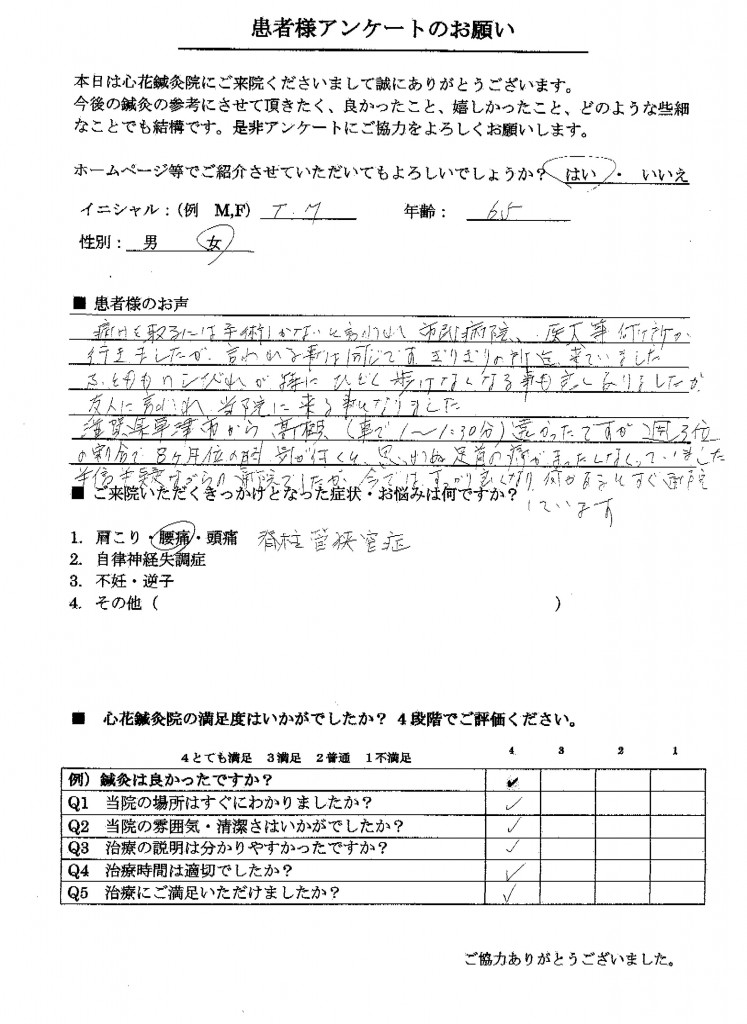 患者様アンケートのお願い
本日は心花鍼灸院にご来院くださいまして誠にありがとうございます。
今後の鍼灸の参考にさせて頂きたく、良かったこと、嬉しかったこと、どのような些細
なことでも結構です。是非アンケートにご協力をよろしくお願いします。
ホームページ等でご紹介させていただいてもよろしいでしょうか? はい ・ いいえ
イニシャル：(例 M,F) T.M 年齢： 65
性別： 男 女
■ 患者様のお声
痛みを取るには手術しかないと言われ 市民病院、医大等 何ヶ所か
行きましたが、言われる事は同じです ぎりぎりの所迄 来ていました
ふともものシビれが特にひどく 歩けなくなる事も 有りましたが
友人に言われ、当院に来る事になりました
滋賀県草津市から 高槻 (車で1〜1:30分) 遠かったですが 週3位
の割合で 8ヶ月位の時 気が付くと、足首の痛みがまったくなくなっていました
半信半疑ながらの通院でしたが、今ではすっかり良くなり 何かあるとすぐ通院
しています
■ ご来院いただくきっかけとなった症状・お悩みは何ですか?
1. 肩こり・腰痛・頭痛 脊柱管狭窄症
2. 自律神経失調症
3. 不妊・逆子
4. その他 ( )
■ 心花鍼灸院の満足度はいかがでしたか? 4段階でご評価ください。
4とても満足 3満足 2普通 1不満足 4 3 2 1
例) 鍼灸は良かったですか? ✔
Q1 当院の場所はすぐにわかりましたか? ✓
Q2 当院の雰囲気・清潔さはいかがでしたか? ✓
Q3 治療の説明は分かりやすかったですか? ✓
Q4 治療時間は適切でしたか? ✓
Q5 治療にご満足いただけましたか? ✓
ご協力ありがとうございました。